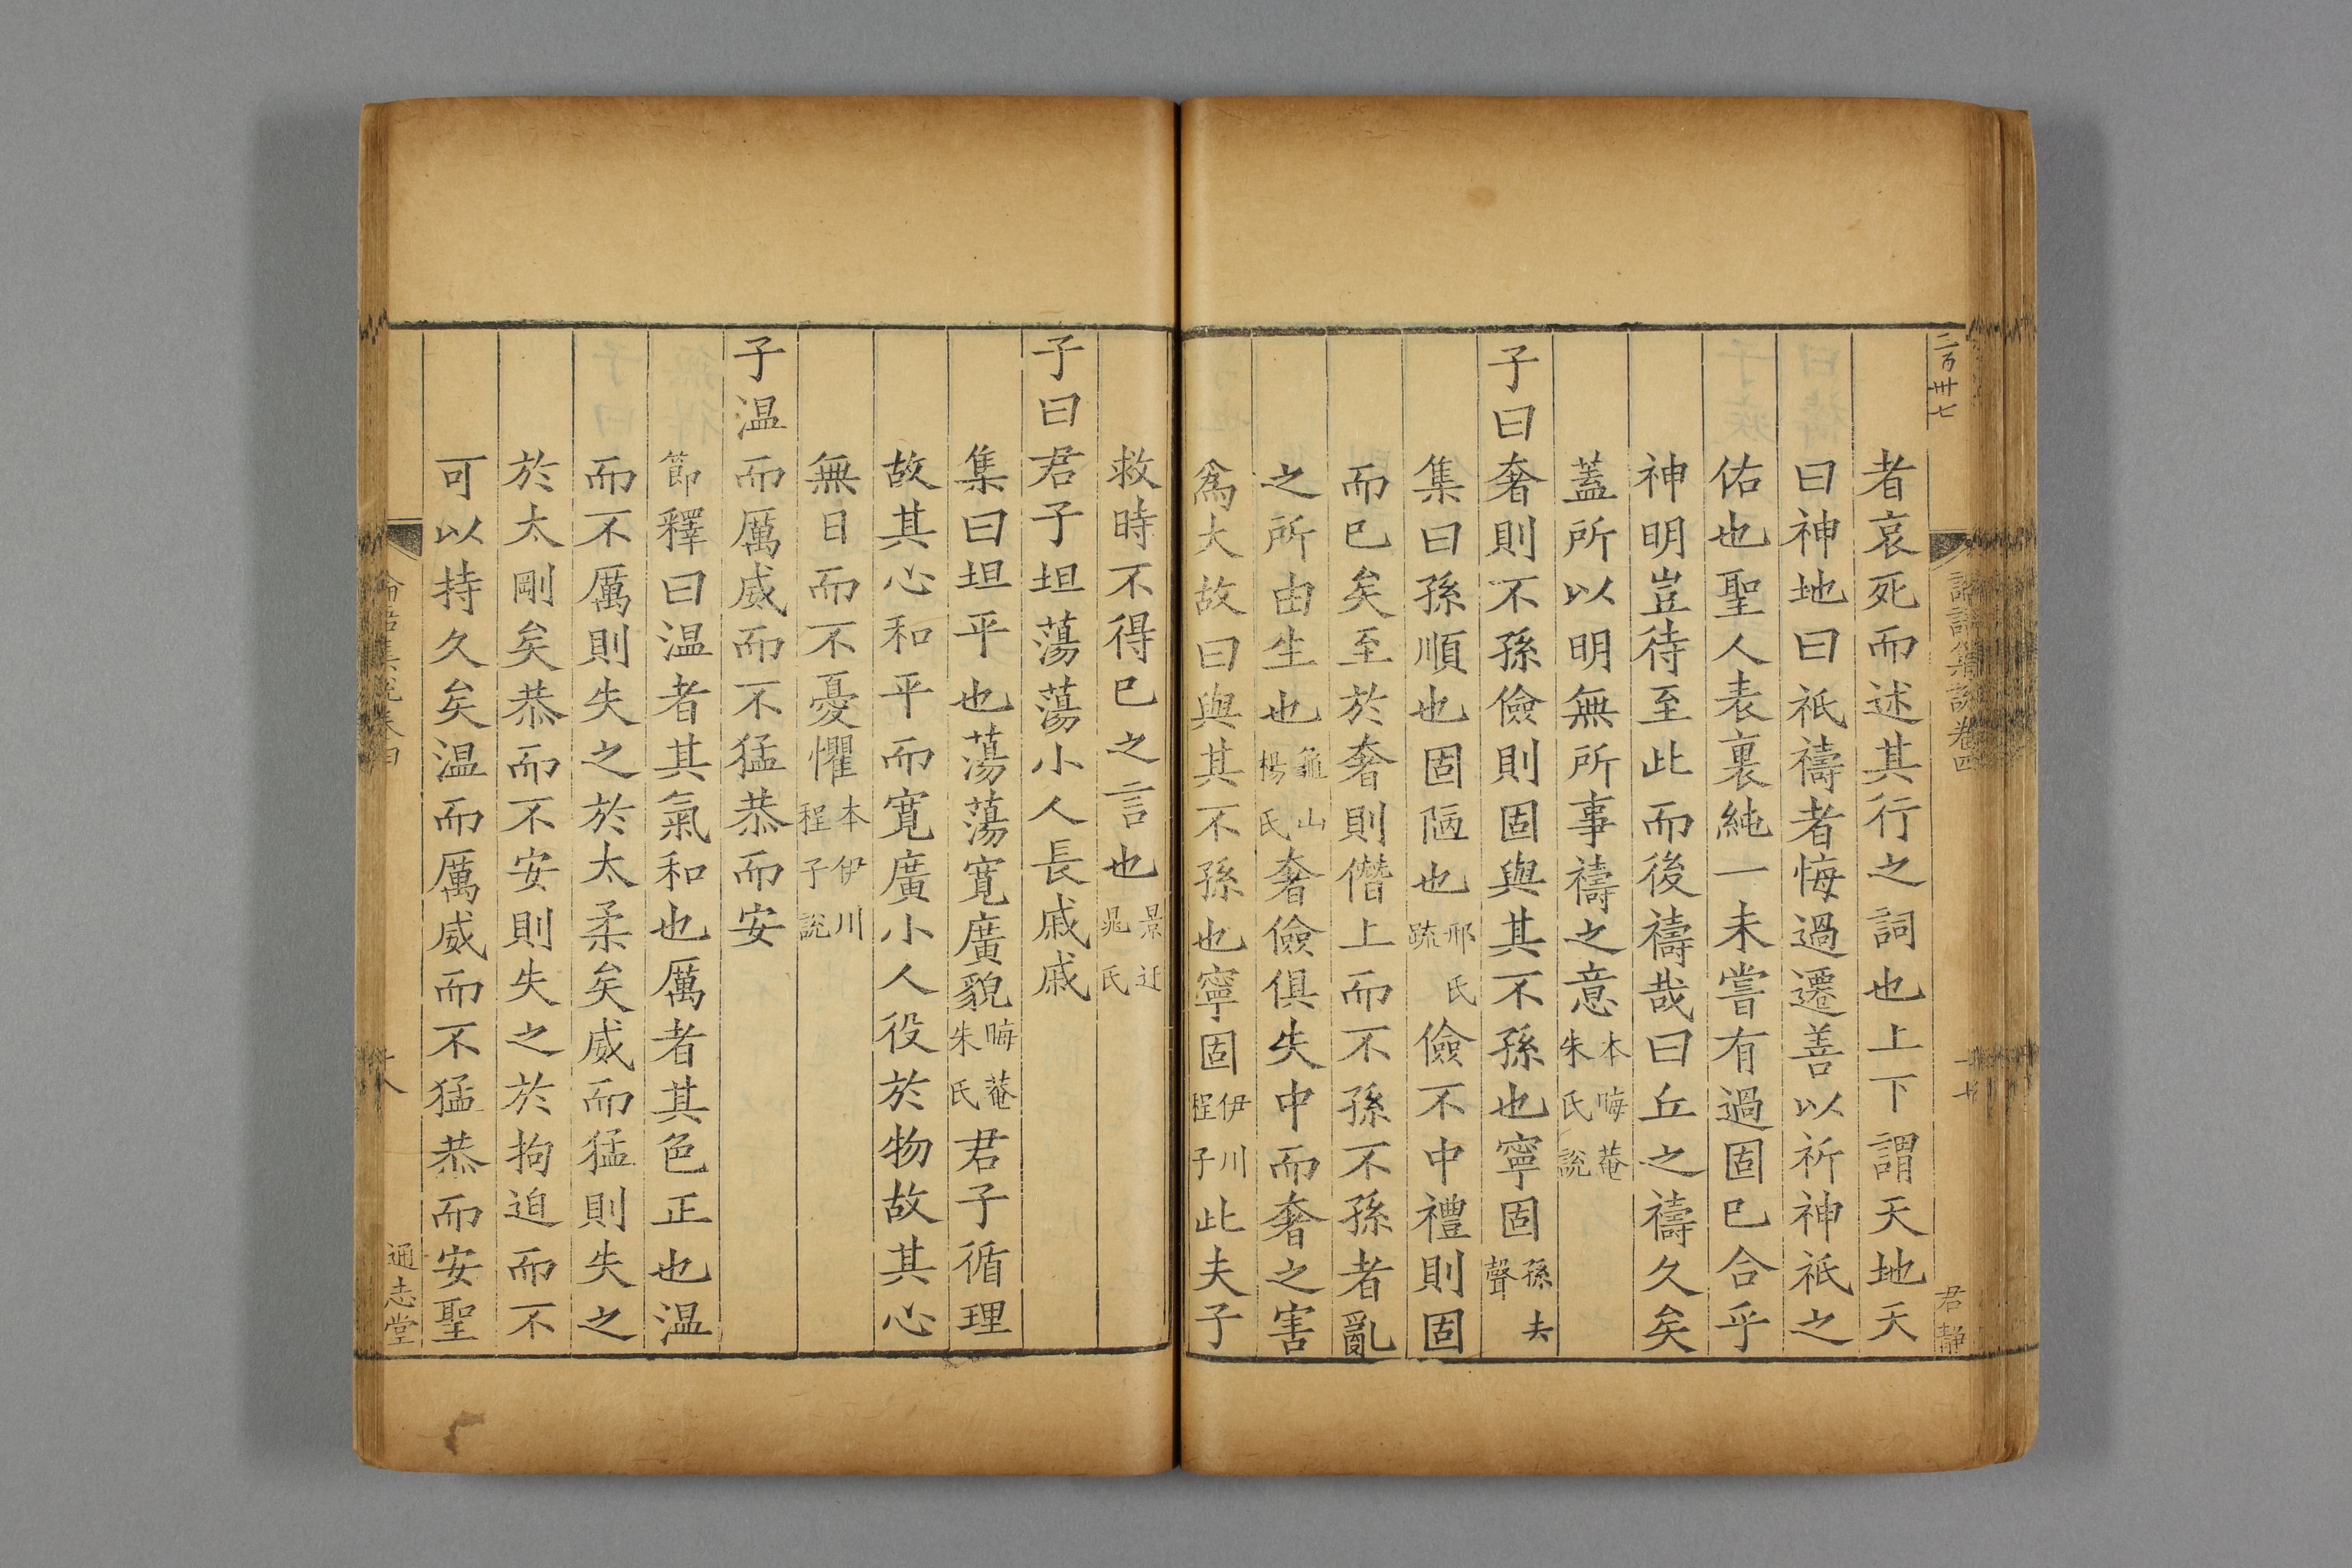 二百卅七
論語集説卷四
十七
君靜
者哀死而述其行之詞也上下謂天地天
曰神地曰祇禱者悔過遷善以祈神祇之
佑也聖人表裏純一未嘗有過固已合乎
神明豈待至此而後禱哉曰丘之禱久矣
蓋所以明無所事禱之意本晦菴朱氏説
子曰奢則不孫儉則固與其不孫也寧固孫去聲
集曰孫順也固陋也邢氏疏儉不中禮則固
而已矣至於奢則僭上而不孫不孫者亂
之所由生也龜山楊氏奢儉俱失中而奢之害
爲大故曰與其不孫也寧固伊川程子此夫子
救時不得已之言也景迂晁氏
子曰君子坦蕩蕩小人長戚戚
集曰坦平也蕩蕩寬廣貌晦菴朱氏君子循理
故其心和平而寬廣小人役於物故其心
無日而不憂懼本伊川程子説
子温而厲威而不猛恭而安
節釋曰温者其氣和也厲者其色正也温
而不厲則失之於太柔矣威而猛則失之
於太剛矣恭而不安則失之於拘迫而不
可以持久矣温而厲威而不猛恭而安聖
論語集説卷四
十八
通志堂